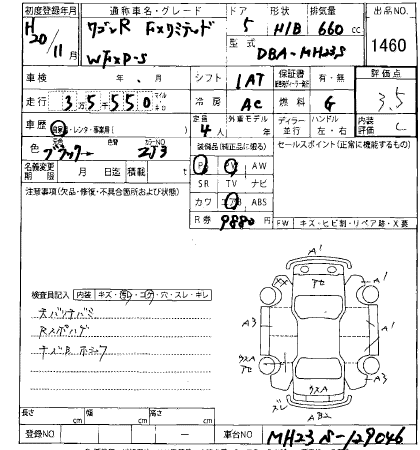 初度登録年月 通称車名・グレード ドア 形状 排気量 出品NO.
H20/11月 ワゴンR FXリミテッド 5 H/B 660 cc 1460
WFXP-S 型式 DBA-MH23S
車検 年 . 月 シフト 1AT 保証書 有・無 評価点
走行 3万5千550 マイル キロ 冷房 AC 燃料 G 3.5
車歴 自家用・レンタ・事業用( ) 定員 4人 外車モデル 年 ディーラー 並行 ハンドル 左・右 内装評価 C
色 ブラック 色替 カラーNO ZJ3 装備品(純正品に限る) セールスポイント(正常に機能するもの)
名義変更期限 月 日迄 積載 t PS PW AW
注意事項(欠品・修復・不具合箇所および状態) SR TV ナビ
カワ エアB ABS
R券 9880円 FW キズ・ヒビ割・リペア跡・X要
A1
検査員記入 内装 キズ・汚レ・コゲ・穴・スレ・キレ
A3 A1
A3
ズレ A B2
長さ cm 幅 cm 高さ cm
登録NO — 車台NO MH23S-129046